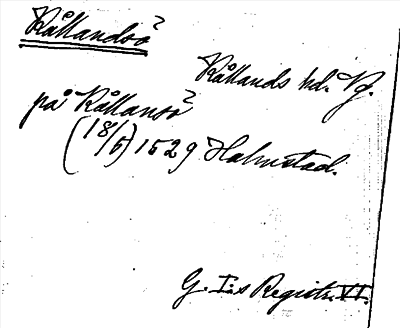 Kållandsö
Kållands hd. Vg.
på Kållansö
(18/5) 1529 Halmstad.
G. I:s Registr. VI.